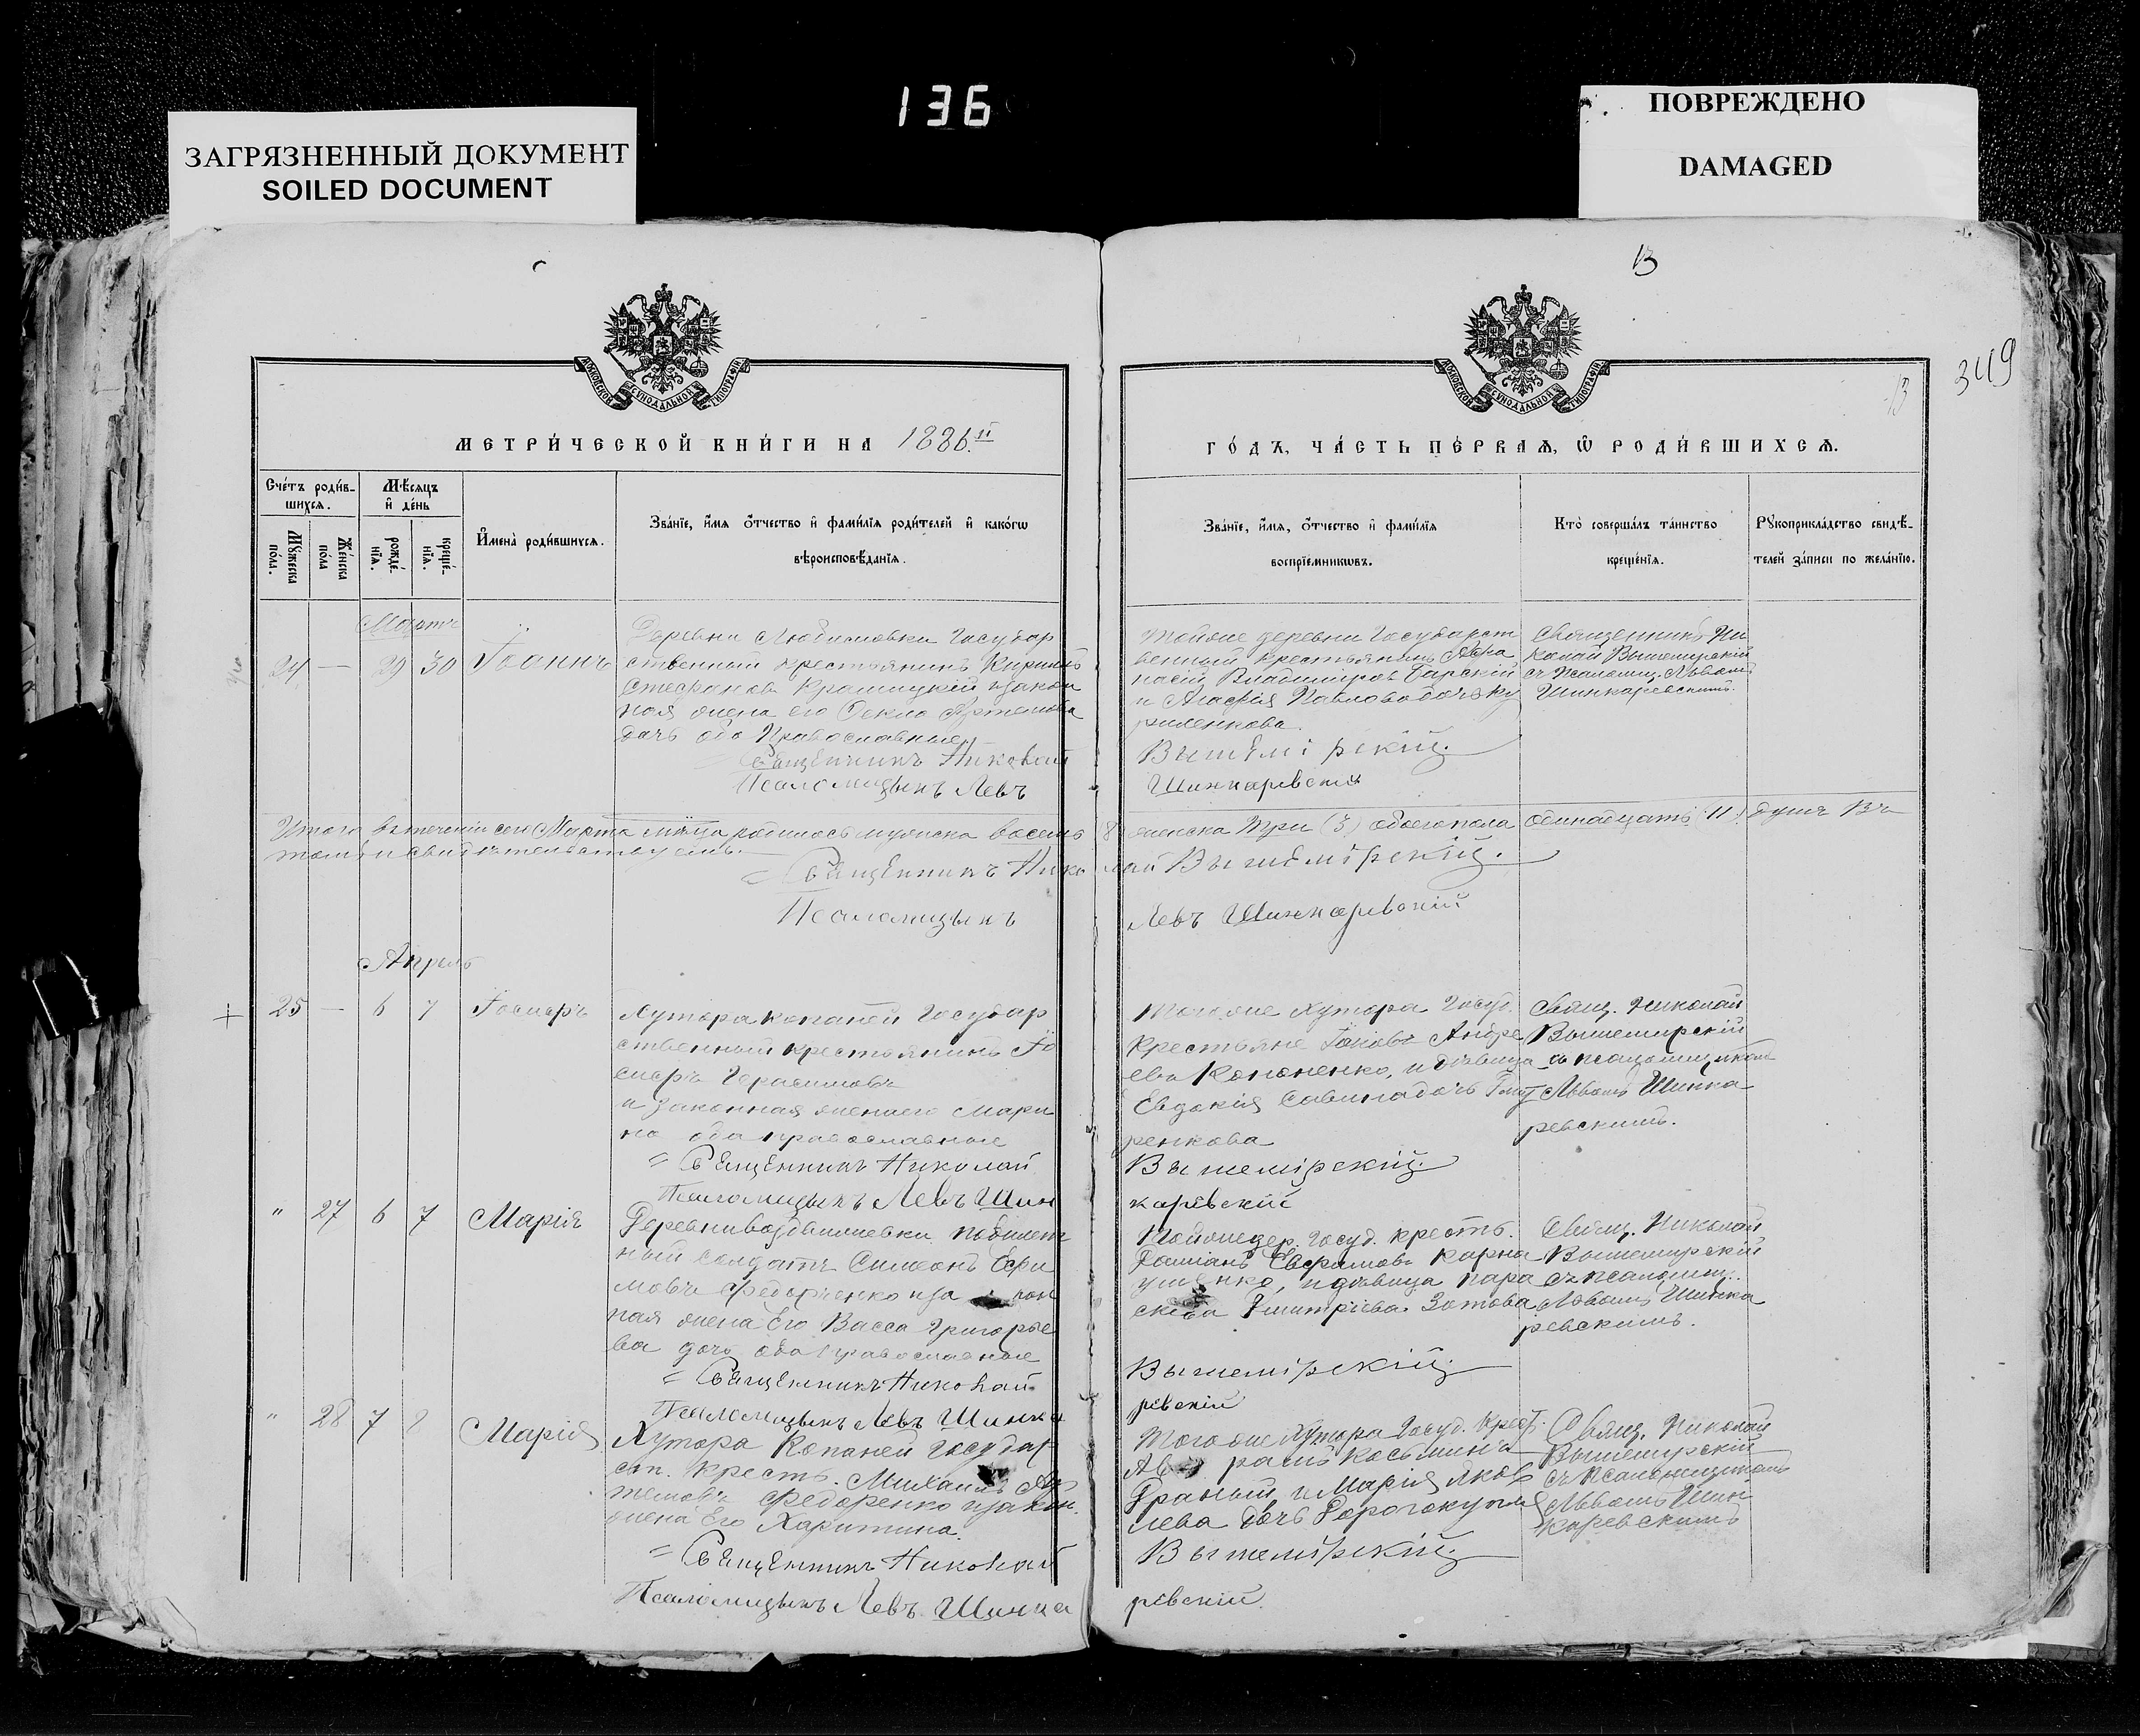 136
ЗАГРЯЗНЕННЫЙ ДОКУМЕНТ
SOILED DOCUMENT
ПОВРЕЖДЕНО
DAMAGED
13
349
13
МОСКОВСКОЙ СУНОДАЛЬНОЙ ТИПОГРАФІИ
МОСКОВСКОЙ СУНОДАЛЬНОЙ ТИПОГРАФІИ
МЕТРИ́ЧЕСКОЙ КНИ́ГИ НА 1886.й
ГО́ДЪ, ЧА́СТЬ ПЕ́РВАѦ, Ѡ РОДИ́ВШИХСѦ.
Сче́тъ роди́в-
шихсѧ.
Мꙋ́жеска
по́ла.
Же́нска
по́ла
Мѣ́сяцъ
и де́нь
рожде́-
нїѧ.
креще́-
нїѧ.
И҆мена̀ роди́вшихсѧ.
Зва́нїе, и҆́мѧ ѻ҆́тчество и҆ фами́лїѧ роди́телей и҆ како́гѡ
вѣроисповѣ́данїѧ.
Зва́нїе, и҆́мѧ, ѻ҆́тчество и҆ фами́лїѧ
воспрїе́мникѡвъ.
Кто̀ соверша́лъ та́инство
креще́нїѧ.
Рꙋкоприкла́дство свидѣ́-
телей за́писи по жела́нїю.
Мартъ
24 — 29 30 Іоаннъ
Деревни Любимовки Государ
ственный крестьянинъ Кириллъ
Стефановъ Крашицкій изакон
ная жена его Ѳекла Артемова
дочь оба Православные
Священникъ Николай
Псаломщикъ Левъ
Тойже деревни Государст
венный крестьянинъ Аѳа
насій Владиміровъ Барскій
и Агафія Павлова дочь
риленкова
Вышемірскій.
Шинкаревскій
Священникъ Ни
колай Вышемирскій
съ Псаломщ. Львомъ
Шинкаревскимъ.
Итого втеченіи сего Марта мѣсяца родилось мужска восемь 8 женска три (3) обоего пола одинадцать (11) душъ Въ
томъ и свидѣтельствуемъ.
Священникъ Николай Вышемірскій.
Псаломщикъ Левъ Шинкаревскій
Апрель
25 — 6 7 Іосифъ
Хутора копаней Государ
ственный крестьянинъ Іо
сифъ Герасимовъ
и законная жена его Мари
на оба православные
Священникъ Николай
Псаломщикъ Левъ Шин
Того же Хутора Госуд.
Крестьяне Іаковъ Андре
евъ Кононенко, и дѣвица
Евдокія Савина дочь Гнат
ренкова
Вышемірскій.
каревскій
Свящ. Николай
Вышемирскій
съ псаломщикомъ
Львомъ Шинка
ревскимъ.
" 27 6 7 Марія
Деревни Воздвиженевки
ный солдатъ Симеонъ Ефи
мовъ Федорченко иза кон
ная жена Его Васса Григорье
ва дочь оба православные
Священникъ Николай
Псаломщикъ Левъ Шинка
Тойже дер. Госуд. крестъ.
Даміанъ Евфимовъ Карна
ушенко, и дѣвица Пара
скева Дмитріева Зотова
Вышемірскій.
ревскій
Свящ. Николай
Вышемирскій
съ псаломщ.
Львомъ Шинка
ревскимъ.
" 28 7 8 Марія
Хутора Копаней Государ
ств. Кресть. Михаилъ Ар
темовъ Федоренко изакон.
жена Его Харитина.
Священникъ Николай
Псаломщикъ Левъ Шинка
Того же Хутора Госуд. Крест.
Ав рамъ Косьминъ
Граный и Марія Яков
лева дочь
Вышемірскій.
ревскій.
Свящ. Николай
Вышемирскій
съ Псаломщикомъ
Львомъ Шин
каревскимъ